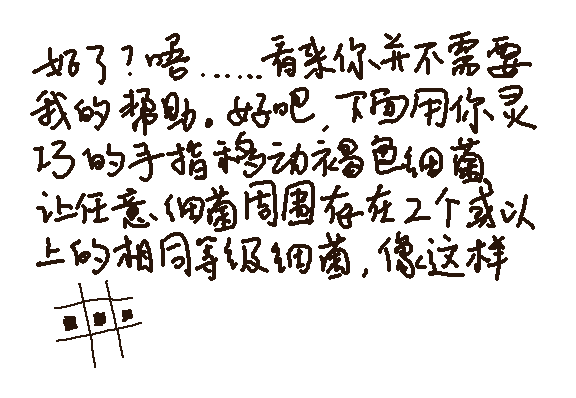 好了?唔……看来你并不需要
我的帮助。好吧,下面用你灵
巧的手指移动褐色细菌
让任意细菌周围存在2个或以
上的相同等级细菌,像这样